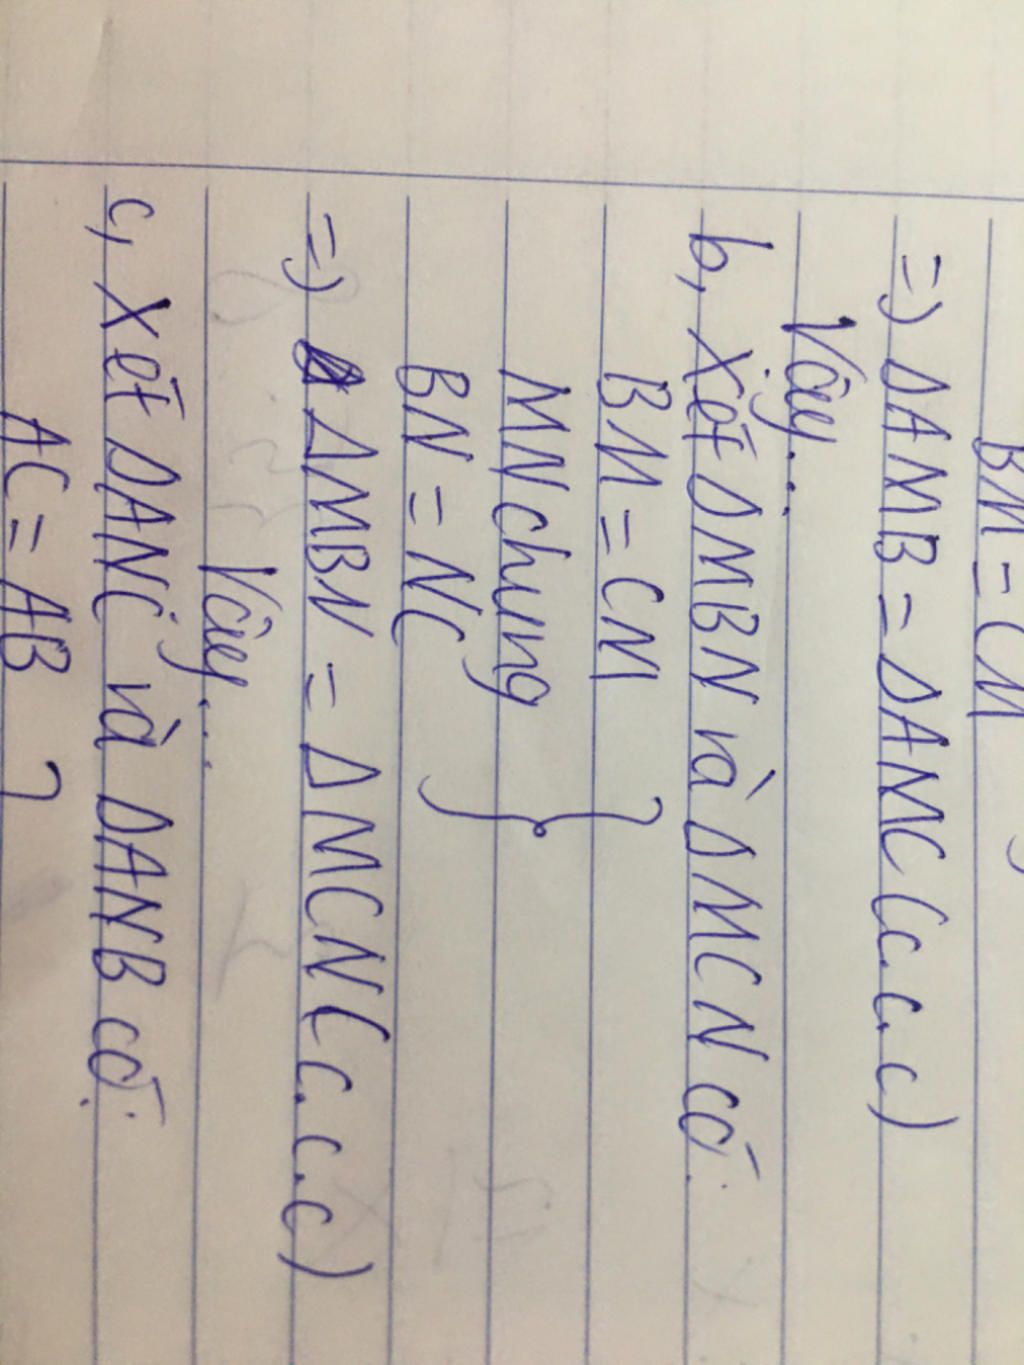 BM = CM
=) ΔAMB = ΔAMC (c.c.c)
Vậy...
b, Xét ΔMBN và ΔMCN có:
BM = CM
MN chung
BN = NC
=) ΔMBN = ΔMCN (c.c.c)
Vậy...
c, Xét ΔANC và ΔANB có:
AC = AB